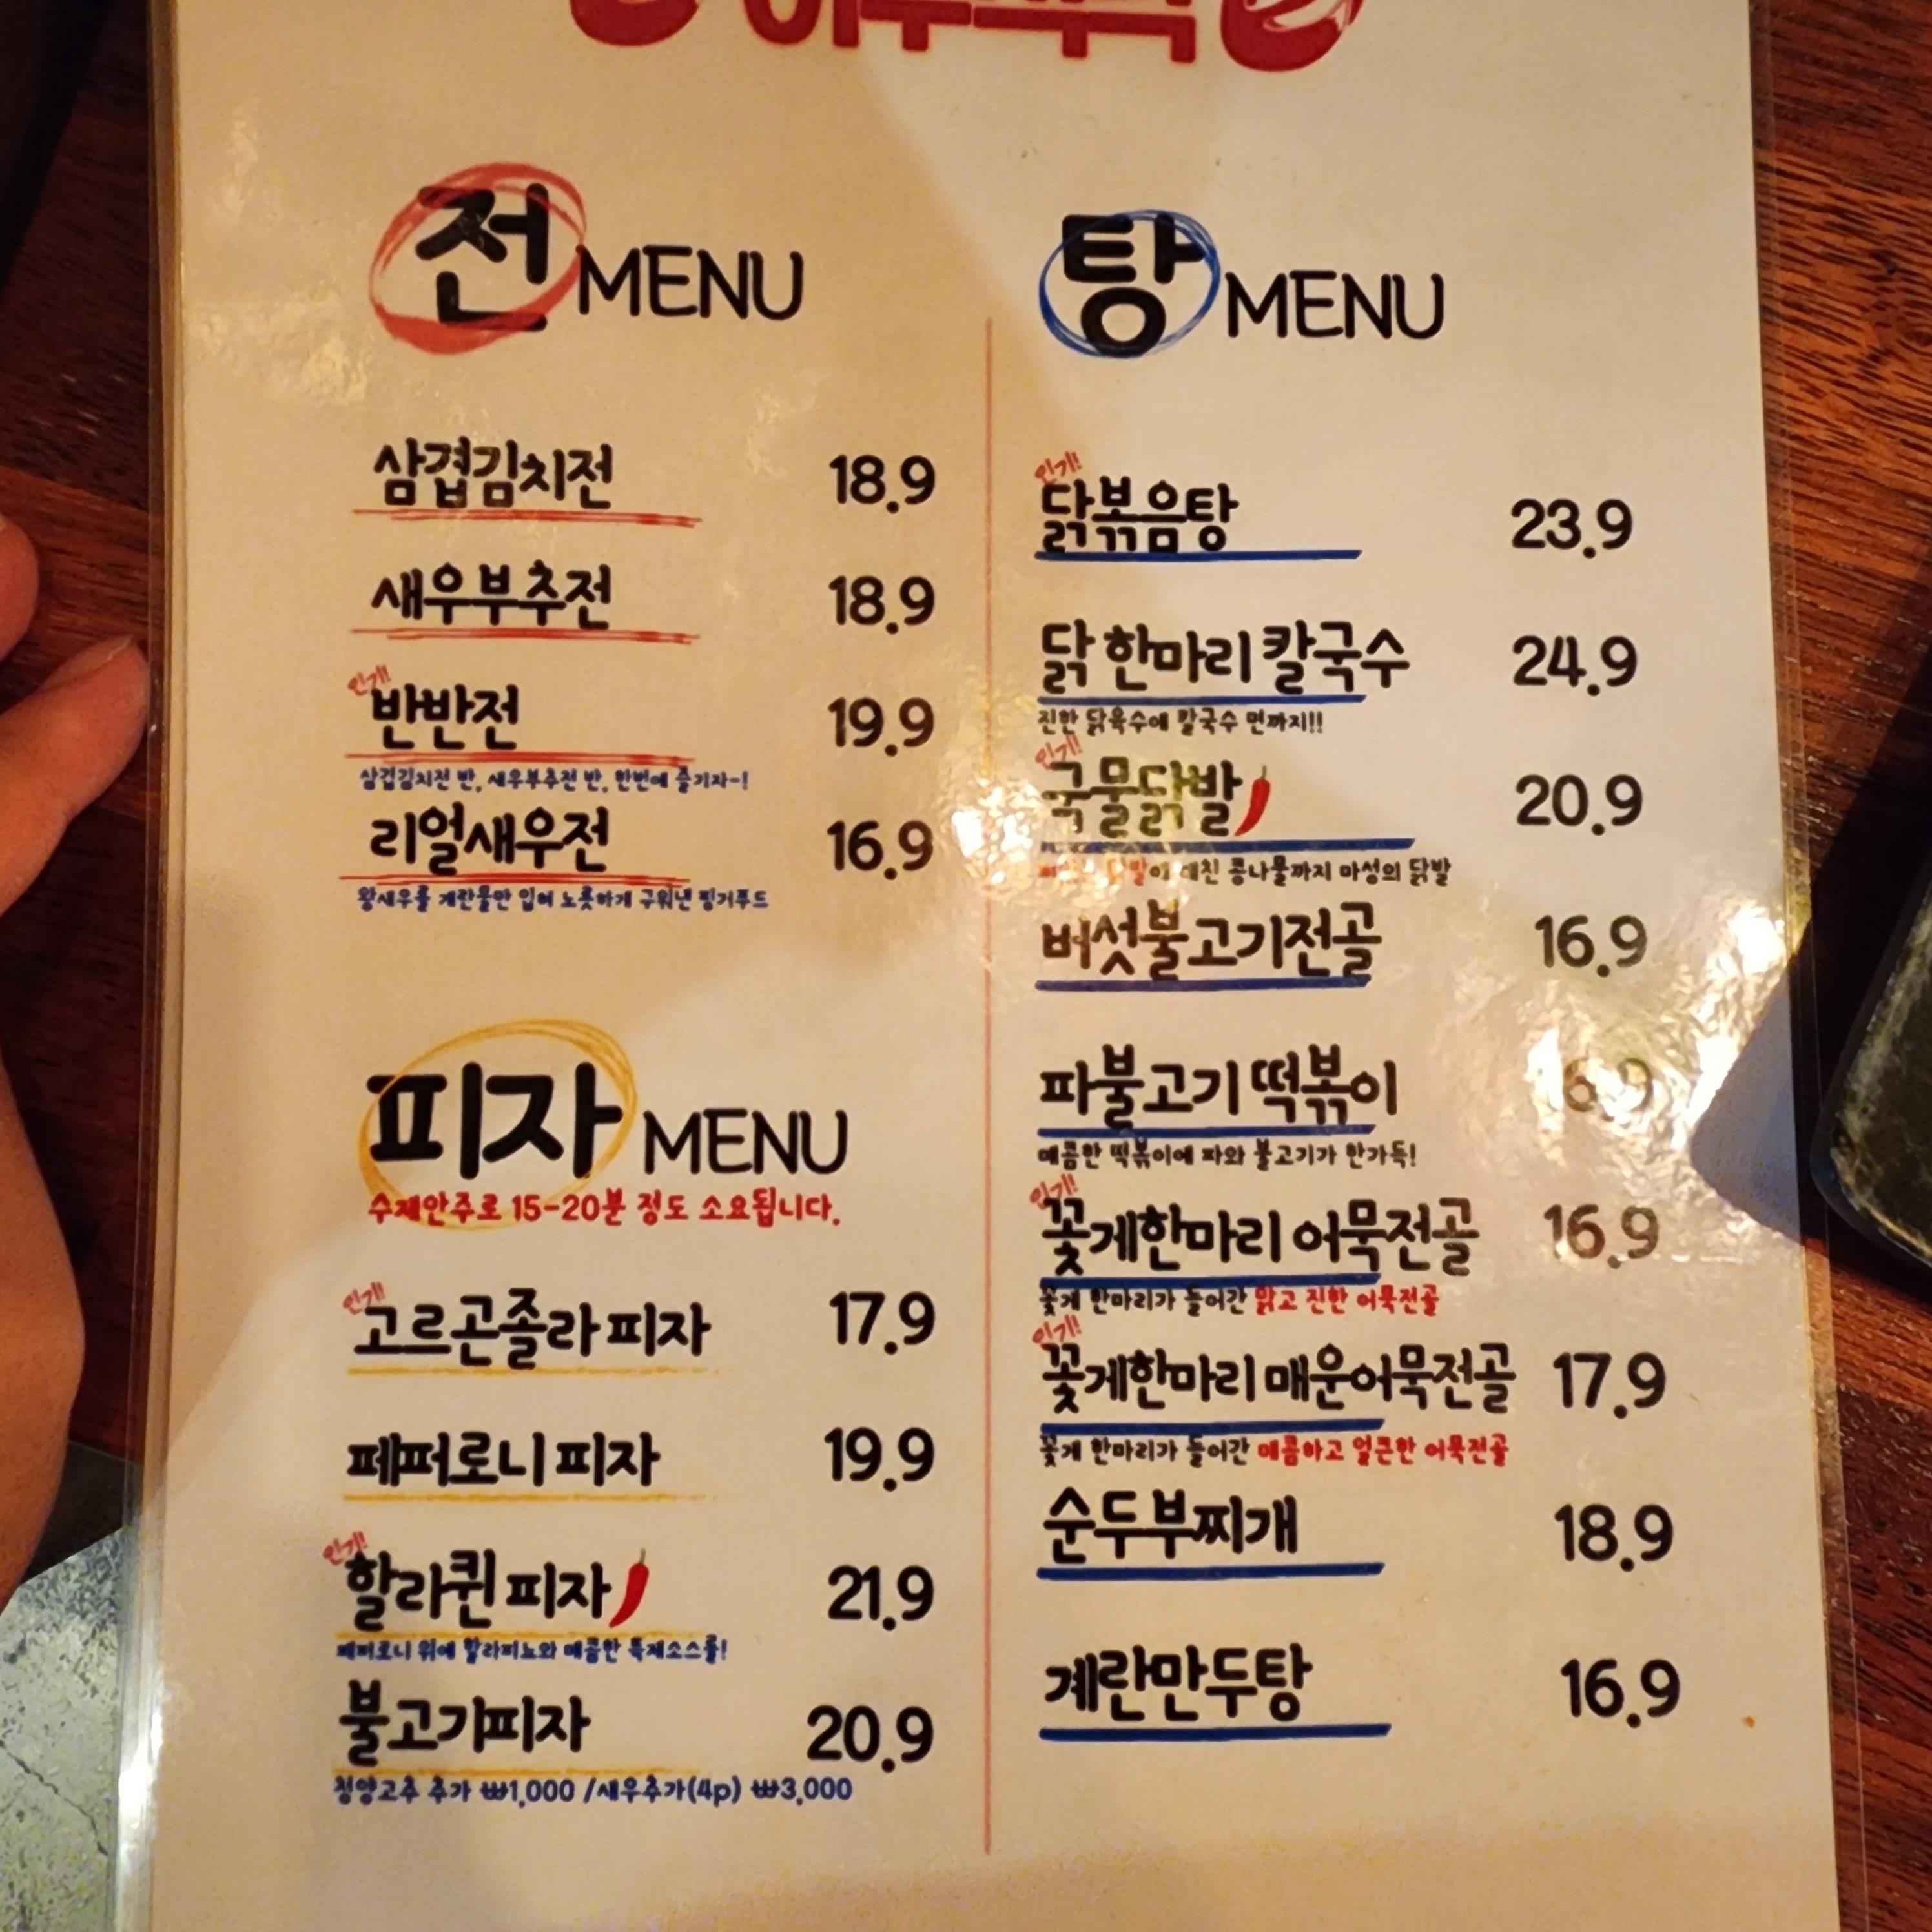 전 MENU
삼겹김치전 18.9
새우부추전 18.9
인기!
반반전 19.9
삼겹김치전 반, 새우부추전 반, 한번에 즐기자~!
리얼새우전 16.9
왕새우를 계란물만 입혀 노릇하게 구워낸 핑거푸드
피자 MENU
수제안주로 15-20분 정도 소요됩니다.
인기!
고르곤졸라 피자 17.9
페퍼로니 피자 19.9
인기!
할라퀸 피자 21.9
페퍼로니 위에 할라피뇨와 매콤한 특제소스를!
불고기피자 20.9
청양고추 추가 ₩1,000 /새우추가(4p) ₩3,000
탕 MENU
인기!
닭볶음탕 23.9
닭 한마리 칼국수 24.9
진한 닭육수에 칼국수 면까지!!
인기!
국물닭발 20.9
닭발에 데친 콩나물까지 마성의 닭발
버섯불고기전골 16.9
파불고기 떡볶이 6.9
매콤한 떡볶이에 파와 불고기가 한가득!
인기!
꽃게한마리 어묵전골 16.9
꽃게 한마리가 들어간 맑고 진한 어묵전골
인기!
꽃게한마리 매운어묵전골 17.9
꽃게 한마리가 들어간 매콤하고 얼큰한 어묵전골
순두부찌개 18.9
계란만두탕 16.9